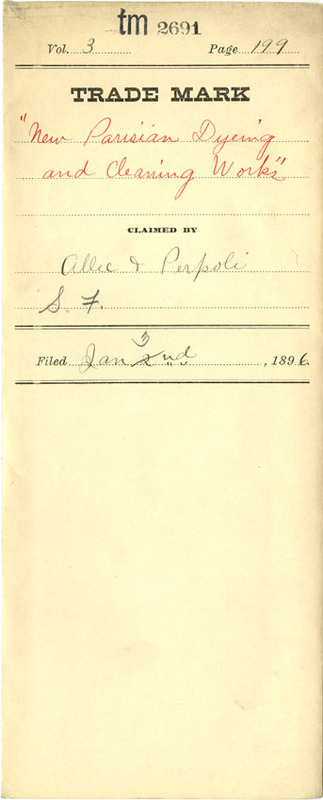 tm 2691
Vol. 3 Page 199
TRADE MARK
"New Parisian Dyeing
and Cleaning Works"
CLAIMED BY
Allec & Perpoli
S. F.
3
Filed Jan 2nd, 1896.